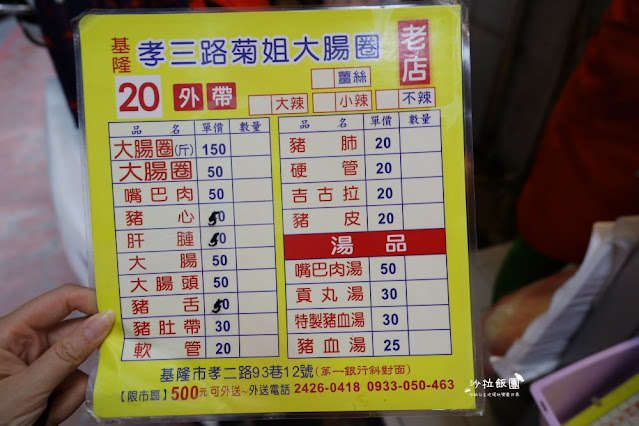 基隆 孝三路菊姐大腸圈 老店
20 外帶
薑絲
大辣 小辣 不辣
品名 單價 數量
大腸圈(斤) 150
大腸圈 50
嘴巴肉 50
豬心 50
肝腱 50
大腸 50
大腸頭 50
豬舌 50
豬肚帶 30
軟管 20
品名 單價 數量
豬肺 20
硬管 20
吉古拉 20
豬皮 20
湯品
嘴巴肉湯 50
貢丸湯 30
特製豬血湯 30
豬血湯 25
基隆市孝二路93巷12號(第一銀行斜對面)
【限市區】500元可外送~外送電話 2426-0418 0933-050-463
沙拉飯團